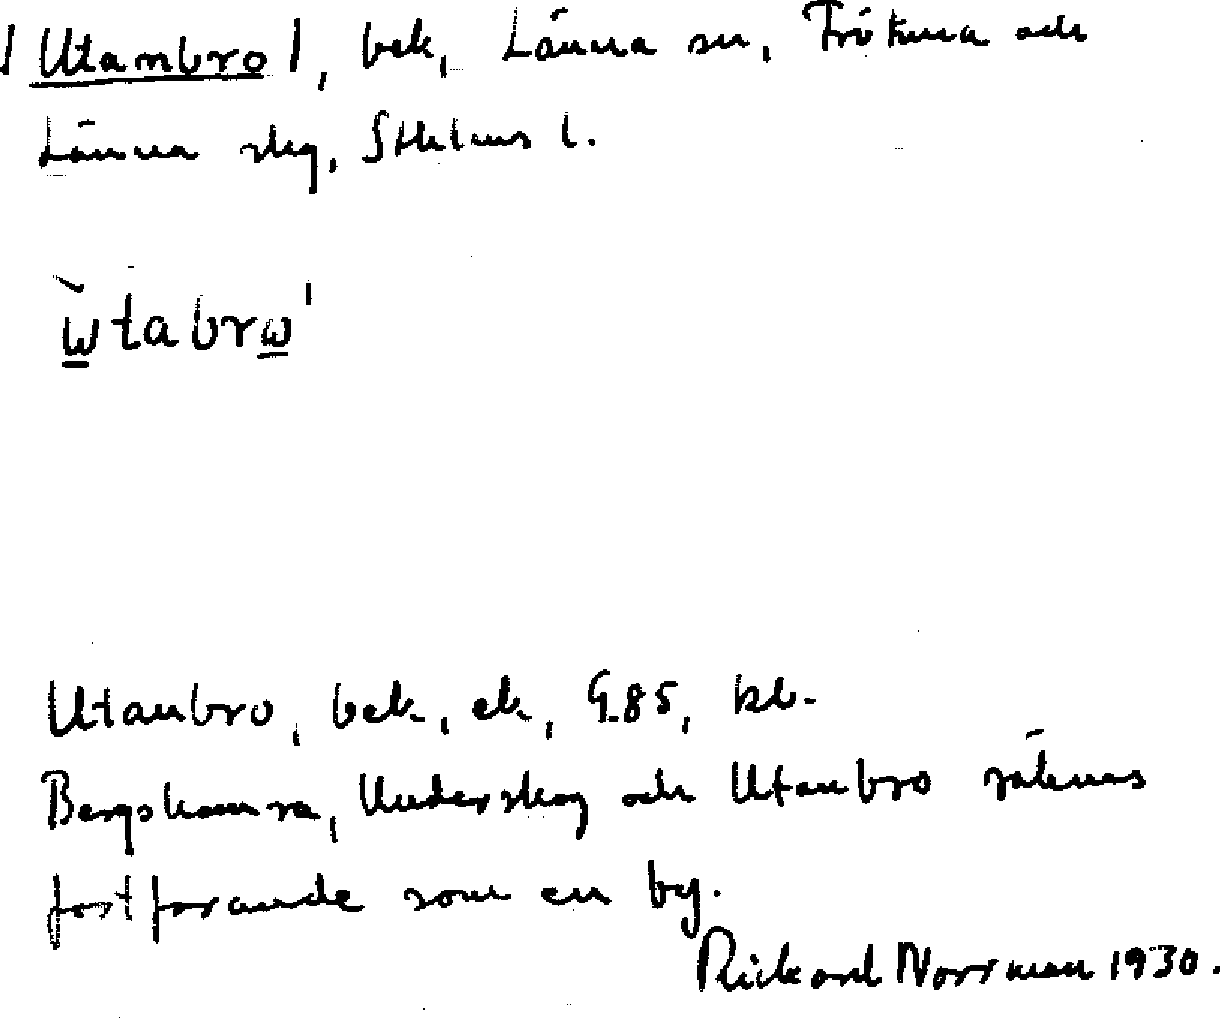 /Utanbro/, bek, Länna sn, Frötuna och
Länna skg, Sthlms l.
ὼtabrω'
Utanbro, bek, ek, G.85, kb.
Bergshamra, Underskog och Utanbro räknas
fortfarande som en by.
Rickard Norrman 1930.